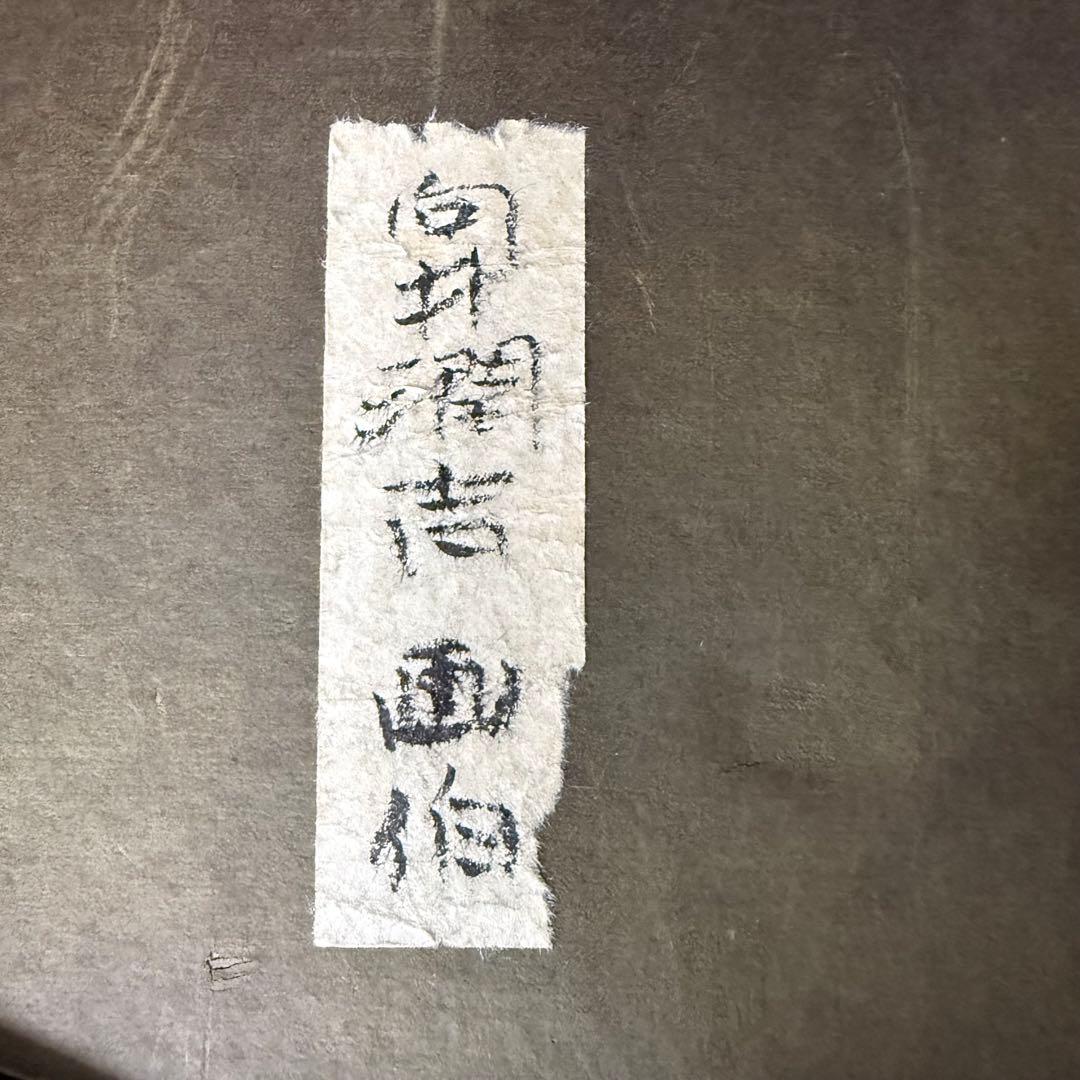 向井潤吉 画伯